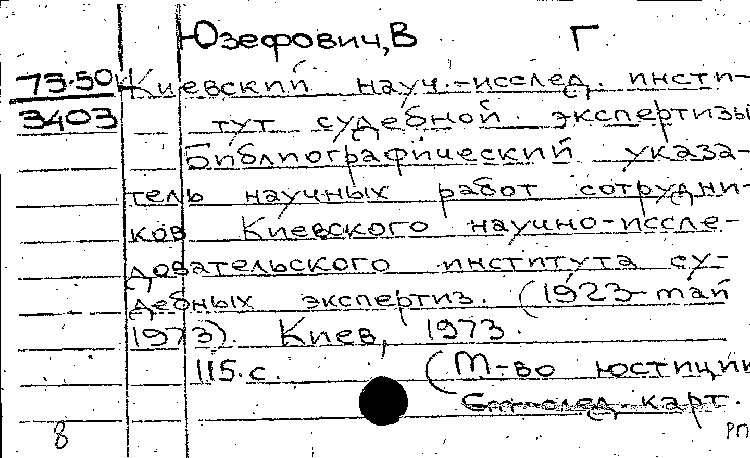 Юзефович, В Г
73-50 Киевский науч.-исслед. инсти-
3403 тут судебной экспертизы
Библиографический указа-
тель научных работ сотрудни-
ков Киевского научно-иссле-
довательского института су-
дебных экспертиз. (1923-май
1973). Киев, 1973.
115.с. (М-во юстиции
См-след. карт.
8 РП